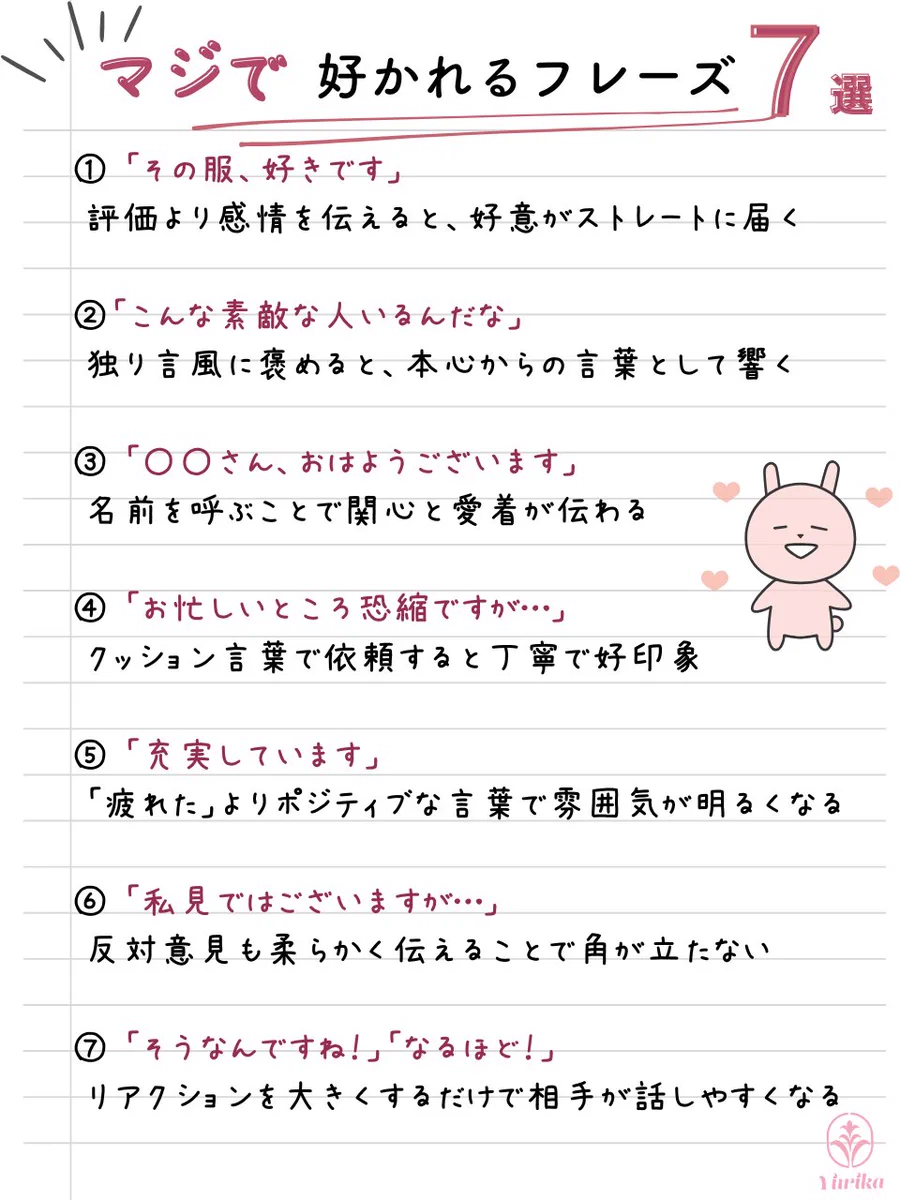 マジで 好かれるフレーズ7選
①「その服、好きです」
評価より感情を伝えると、好意がストレートに届く
②「こんな素敵な人いるんだな」
独り言風に褒めると、本心からの言葉として響く
③「〇〇さん、おはようございます」
名前を呼ぶことで関心と愛着が伝わる
④「お忙しいところ恐縮ですが…」
クッション言葉で依頼すると丁寧で好印象
⑤「充実しています」
「疲れた」よりポジティブな言葉で雰囲気が明るくなる
⑥「私見ではございますが…」
反対意見も柔らかく伝えることで角が立たない
⑦「そうなんですね!」「なるほど!」
リアクションを大きくするだけで相手が話しやすくなる
Yurika